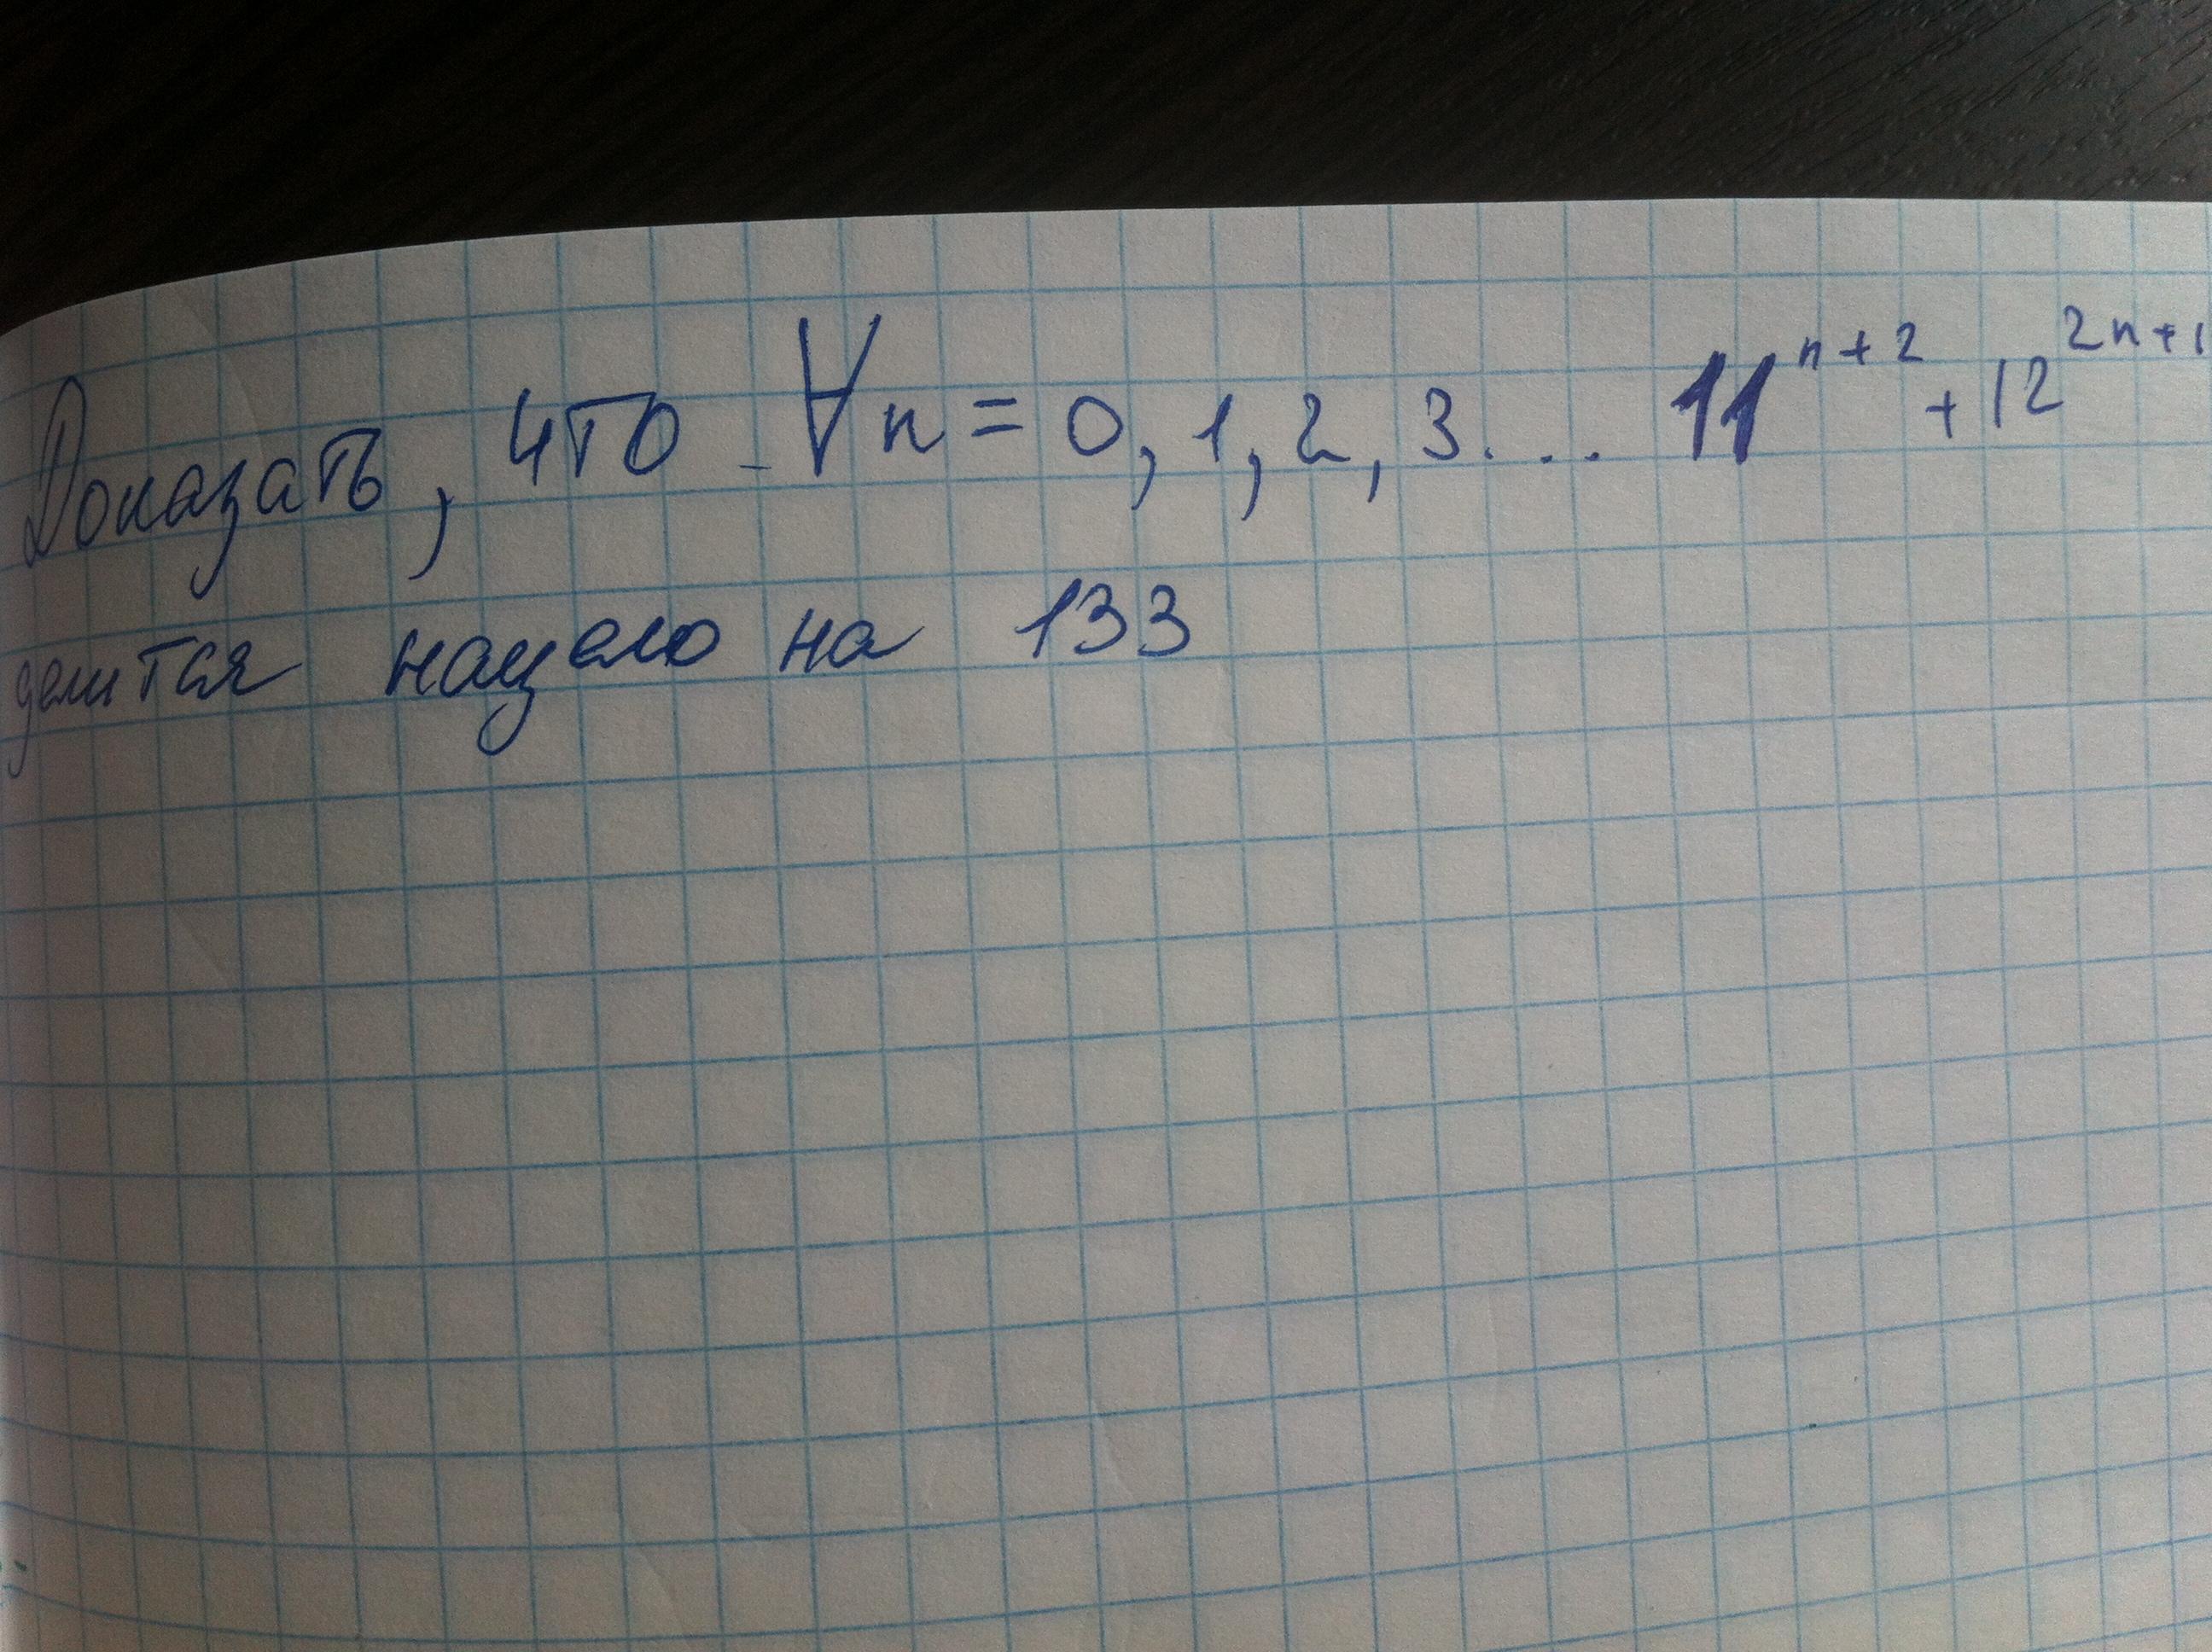 Доказать, что ∀n = 0, 1, 2, 3... 11^{n+2} + 12^{2n+1}
делится нацело на 133